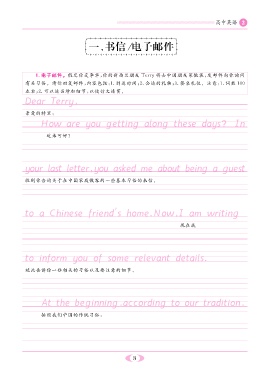 高中英语
一、书信/电子邮件
1.电子邮件。假定你是李华,你的新西兰朋友 Terry 将去中国朋友家做客,发邮件向你询问
有关习俗。请你回复邮件,内容包括:1.到达时间;2.合适的礼物;3.餐桌礼仪。注意:1.词数100
左右;2.可以适当增加细节,以使行文连贯。
Dear Terry,
亲爱的特里:
How are you getting along these days? In
近来可好?
your last letter,you asked me about being a guest
to a Chinese friend's home.Now,I am writing
现在我
to inform you of some relevant details.
At the beginning,according to our tradition,
按照我们中国的传统习俗,